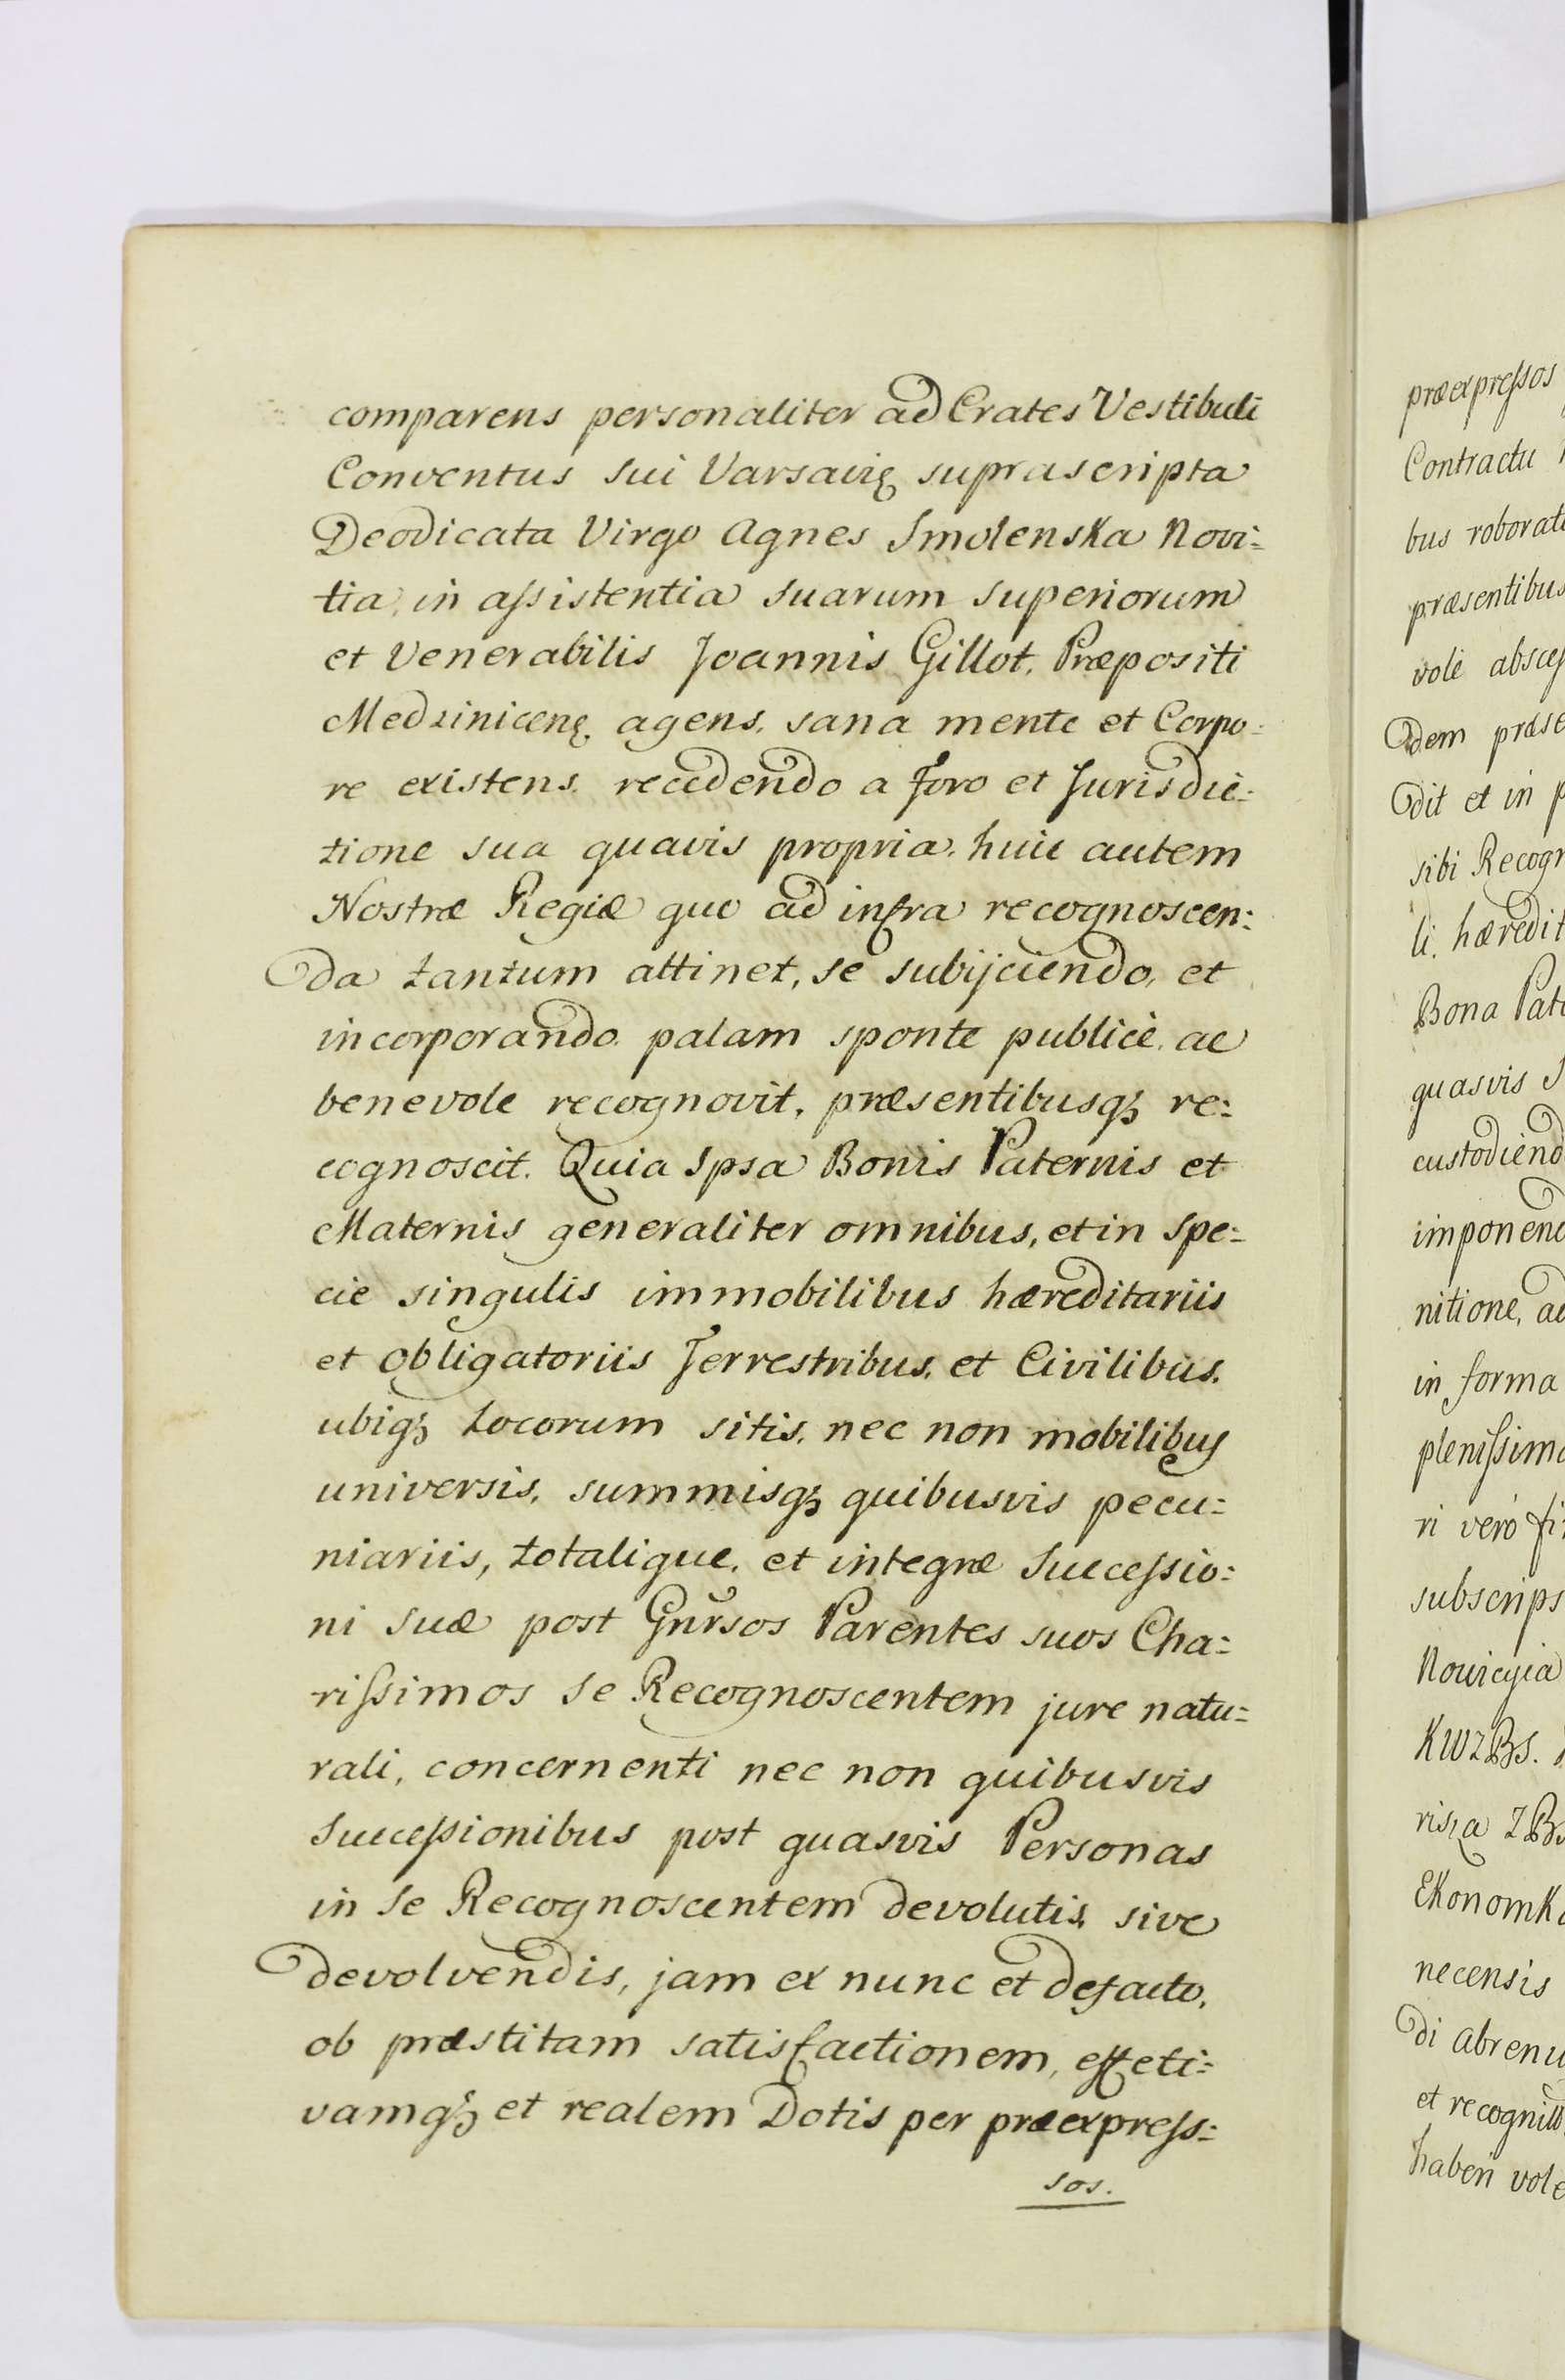 comparens personaliter ad Crates Vestibuli
Conventus sui Varsavię suprascripta
Deodicata Virgo Agnes Smolenska Novi=
tia, in assistentia suarum superiorum
et Venerabilis Joannis Gillot, Præpositi
Medzinicenę. agens, sana mente et Corpo=
re existens. recedendo a foro et Jurisdic=
tione sua quavis propria. huic autem
Nostræ Regiæ quo ad infra recognoscen=
da tantum attinet, se subijciendo, et
incorporando. palam sponte publicè, ac
benevole recognovit, præsentibusq₃ re=
cognoscit. Quia Ipsa Bonis Paternis et
Maternis generaliter omnibus, et in spe=
cie singulis immobilibus hæreditariis
et obligatoriis Terrestribus, et Civilibus,
ubiq₃ locorum sitis, nec non mobilibus
universis, summisq₃ quibusvis pecu=
niariis, totalique, et integræ Successio=
ni suæ post Gnrsos Parentes suos Cha=
rissimos se Recognoscentem jure natu=
rali, concernenti nec non quibusvis
Successionibus post quasvis Personas
in se Recognoscentem devolutis, sive
devolvendis, jam ex nunc et defacto,
ob præstitam satisfactionem, effeti=
vamq₃ et realem Dotis per præexpress=
sos.
præexpressos
Contractu
bus roborat
præsentibus
volè absces
dem præse
dit et in p
sibi Recogn
li. hæredit
Bona Pat
quasvis S
custodiend
imponend
nitione, ac
in forma
plenissima
ri verò fi
subscrips
Nowicyia
KWZBS.
risza ZBS
Ekonomka
necensis
di abrenu
et recognit
haberi vole